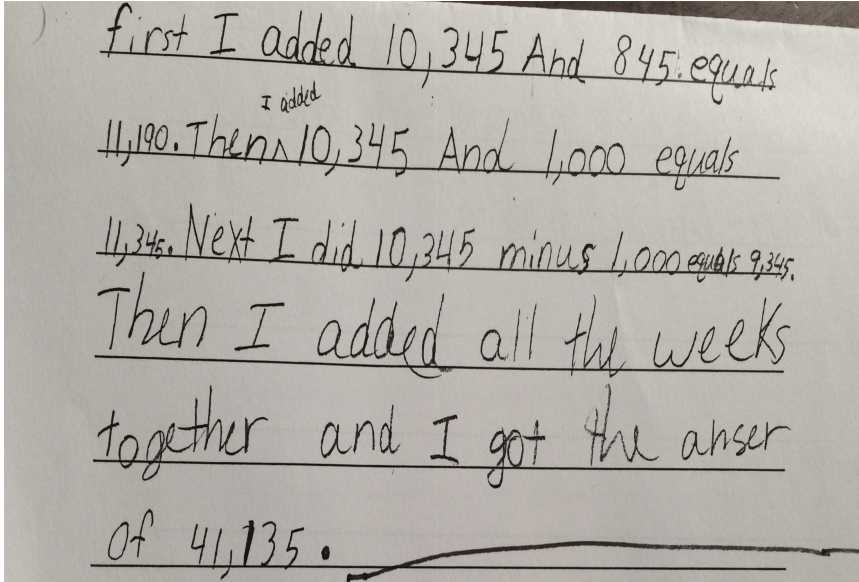 first I added 10,345 And 845. equals
I added
11,190. Then^10,345 And 1,000 equals
11,345. Next I did 10,345 minus 1,000 equals 9,345.
Then I added all the weeks
together and I got the anser
of 41,135.